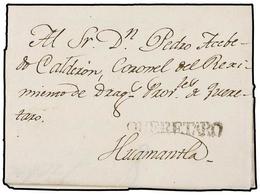 Al Sr. Dn. Pedro Acebe-
do Calderon, Coronel del Rexi-
miento de Drags. Provles. de Quere-
taro.
QUERETARO
Huamantla.